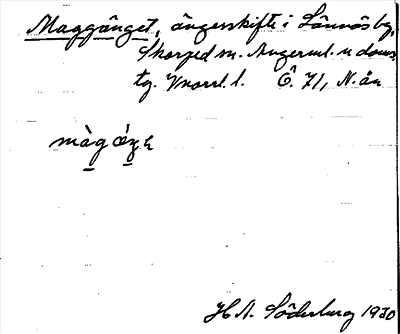 Maggänget, ängesskifte i Lännäs by,
Skorped sn. Ångerml. n doms.
tg. Vnorrl. l. Ö. 71, N. ån
màg ǽŋe
H A. Söderberg 1930